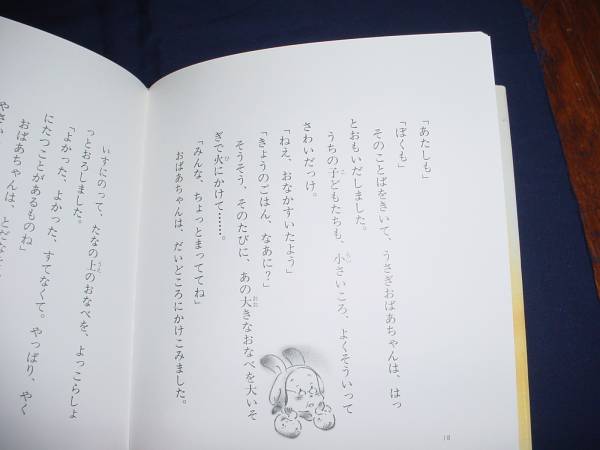 「あたしも」
「ぼくも」
そのことばをきいて、うさぎおばあちゃんは、はっ
とおもいだしました。
うちの子どもたちも、小さいころ、よくそういって
さわいだっけ。
「ねえ、おなかすいたよう」
「きょうのごはん、なあに？」
そうそう、そのたびに、あの大きなおなべを大いそ
ぎで火にかけて……。
「みんな、ちょっとまっててね」
おばあちゃんは、だいどころにかけこみました。
18
いすにのって、たなの上のおなべを、よっこらしょ
っとおろしました。
「よかった、よかった、すてなくて。やっぱり、やく
にたつことがあるものね」
おばあちゃんは、とだなに
やさい